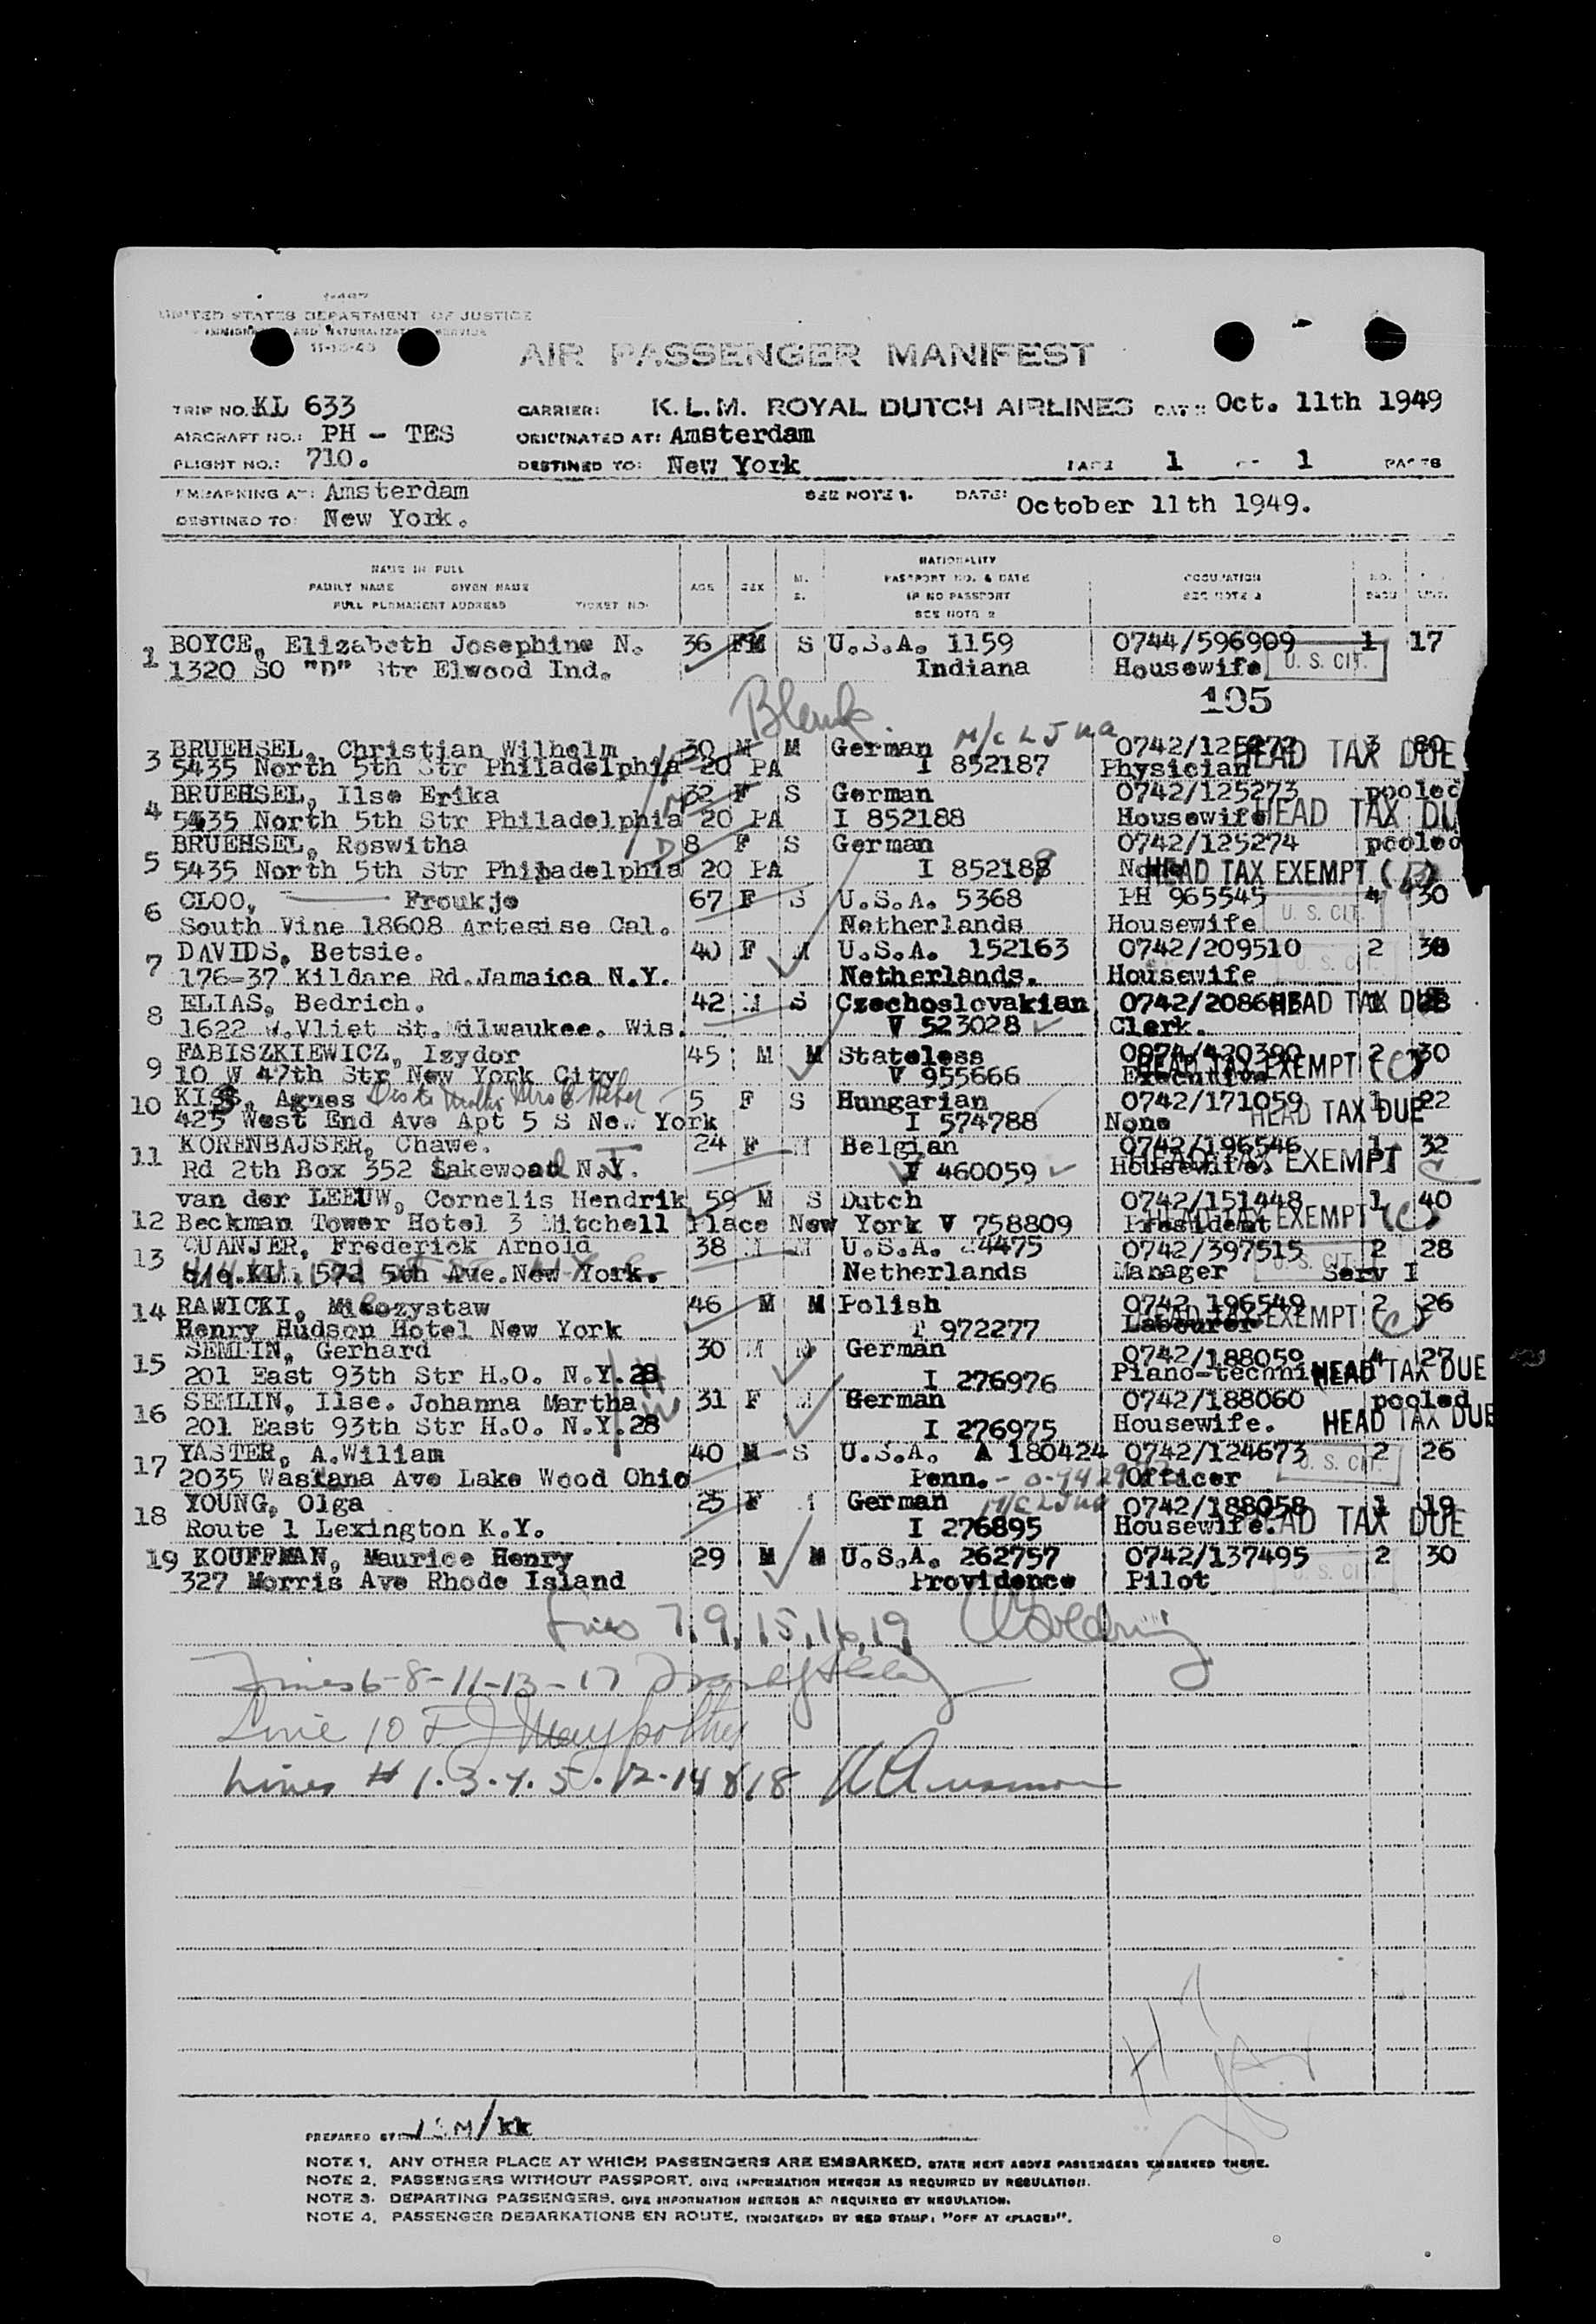 UNITED STATES DEPARTMENT OF JUSTICE
IMMIGRATION AND NATURALIZATION SERVICE
AIR PASSENGER MANIFEST
TRIP NO. KL 633 CARRIER: K.L.M. ROYAL DUTCH AIRLINES DATE: Oct. 11th 1949
AIRCRAFT NO.: PH - TES ORIGINATED AT: Amsterdam
FLIGHT NO.: 710. DESTINED TO: New York PAGE 1 OF 1 PAGES
EMBARKING AT: Amsterdam SEE NOTE 1. DATE: October 11th 1949.
DESTINED TO: New York.
NAME IN FULL
FAMILY NAME GIVEN NAME
FULL PERMANENT ADDRESS TICKET NO.
AGE SEX M. S.
NATIONALITY
PASSPORT NO. & DATE
IF NO PASSPORT
SEE NOTE 2
OCCUPATION
SEE NOTE 2
NO. BAGS
1 BOYCE, Elizabeth Josephine N. 36 FM S U.S.A. 1159 0744/596909 1 17
1320 SO "D" Str Elwood Ind. Indiana Housewife U. S. CIT.
105
Blank.
3 BRUEHSEL, Christian Wilhelm 30 M M German 0742/125272 3 80 HEAD TAX DUE
5435 North 5th Str Philadelphia 20 PA I 852187 Physician
4 BRUEHSEL, Ilse Erika 32 F S German 0742/125273 pooled
5435 North 5th Str Philadelphia 20 PA I 852188 Housewife HEAD TAX DU
5 BRUEHSEL, Roswitha 8 F S German 0742/125274 pooled
5435 North 5th Str Philadelphia 20 PA I 852189 None HEAD TAX EXEMPT
6 CLOO, Froukje 67 F S U.S.A. 5368 PH 965545 4 30
South Vine 18608 Artesise Cal. Netherlands Housewife U. S. CIT.
7 DAVIDS, Betsie. 40 F M U.S.A. 152163 0742/209510 2 30
176-37 Kildare Rd.Jamaica N.Y. Netherlands. Housewife U. S. CIT.
8 ELIAS, Bedrich. 42 M S Czechoslovakian HEAD TAX DUE
1622 W.Vliet St.Milwaukee. Wis. V 523028 Clerk.
9 FABISZKIEWICZ, Izydor 45 M M Stateless 2 30
10 W 47th Str New York City V 955666 Executive HEAD TAX EXEMPT (C)
10 KISS, Agnes 5 F S Hungarian 0742/171059 1 22
425 West End Ave Apt 5 S New York I 574788 None HEAD TAX DUE
11 KORENBAJSER, Chawe. 24 F M Belgian 0742/196546 1 32
Rd 2th Box 352 Lakewood N.J. V 460059 Housewife. HEAD TAX EXEMPT C
12 van der LEEUW, Cornelis Hendrik 59 M S Dutch 0742/151448 1 40
Beckman Tower Hotel 3 Mitchell Place New York V 758809 President HEAD TAX EXEMPT (C)
13 QUANJER, Frederick Arnold 38 M M U.S.A. 0742/397515 2 28
572 5th Ave.New York. Netherlands Manager U. S. CIT. Serv I
14 RAWICKI, Mieczystaw 46 M M Polish 0742 196549 2 26
Henry Hudson Hotel New York 972277 Labourer HEAD TAX EXEMPT (C)
15 SEMLIN, Gerhard 30 M M German 0742/188059 4 27
201 East 93th Str H.O. N.Y.28 I 276976 Piano-techni HEAD TAX DUE
16 SEMLIN, Ilse. Johanna Martha 31 F M German 0742/188060 pooled
201 East 93th Str H.O. N.Y.28 I 276975 Housewife. HEAD TAX DUE
17 YASTER, A.Wiliam 40 M S U.S.A. A 180424 0742/124673 2 26
2035 Wastana Ave Lake Wood Ohio Penn. Officer U. S. CIT.
18 YOUNG, Olga 25 F German 0742/188058 1 19
Route 1 Lexington K.Y. I 276895 Housewife. HEAD TAX DUE
19 KOUFFMAN, Maurice Henry 29 M M U.S.A. 262757 0742/137495 2 30
327 Morris Ave Rhode Island Providence Pilot U. S. CIT.
Lines 7, 9, 15, 16, 19
Lines 6-8-11-13-17
Line 10
Lines # 1.3.4.5.12.14 & 18
PREPARED BY
NOTE 1. ANY OTHER PLACE AT WHICH PASSENGERS ARE EMBARKED, STATE NEXT ABOVE PASSENGERS EMBARKED THERE.
NOTE 2. PASSENGERS WITHOUT PASSPORT, GIVE INFORMATION HEREON AS REQUIRED BY REGULATION.
NOTE 3. DEPARTING PASSENGERS, GIVE INFORMATION HEREON AS REQUIRED BY REGULATION.
NOTE 4. PASSENGER DEBARKATIONS EN ROUTE, INDICATED BY RED STAMP: "OFF AT (PLACE)".